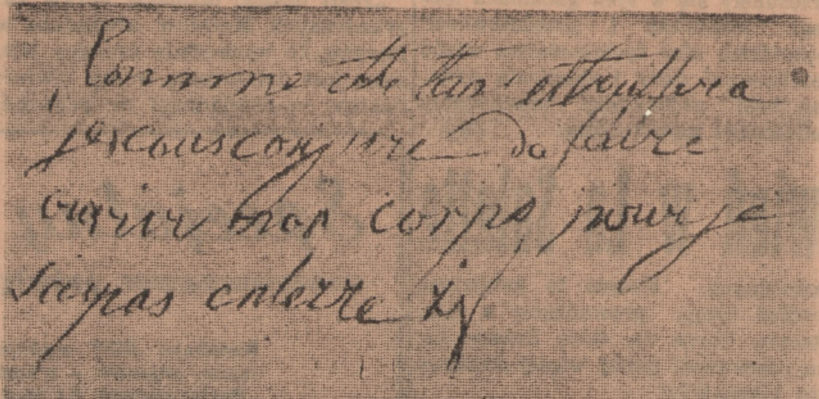 Comme cette étouffera
je vous conjure de faire
ouvrir mon corps pour je
soi pas enterre vif